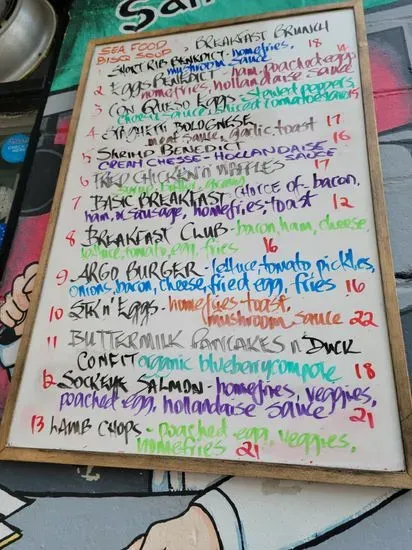 San
SEA FOOD BISQ SOUP, BREAKFAST BRUNCH
1 SHORT RIB BENEDICT - homefries, 18
mushroom sauce
2 EGGS BENEDICT - ham, poached eggs,
homefries, hollandaise sauce
3 CON QUESO EGGS - stewed peppers,
sauce, sliced tomatoes
4 SPAGHETTI BOLOGNESE
meat sauce, garlic toast 17
5 SHRIMP BENEDICT 16
CREAM CHESSE - HOLLANDAISE SAUCE
6 FRIED CHICKEN 'n' WAFFLES 17
7 BASIC BREAKFAST - CHOICE OF - bacon,
ham, sausage, homefries, toast 12
8 BREAKFAST CLUB - bacon, ham, cheese,
lettuce, tomato, egg, fries 16
9 ARGO BURGER - lettuce, tomato, pickles,
onions, bacon, cheese, fried egg, fries 16
10 STK n' EGGS - homefries, toast,
mushroom, sauce 22
11 BUTTERMILK PANCAKES n' DUCK
CONFIT organic blueberry compote 18
12 SOCKEYE SALMON - homefries, veggies,
poached egg, hollandaise sauce 21
13 LAMB CHOPS - poached egg, veggies,
homefries 21